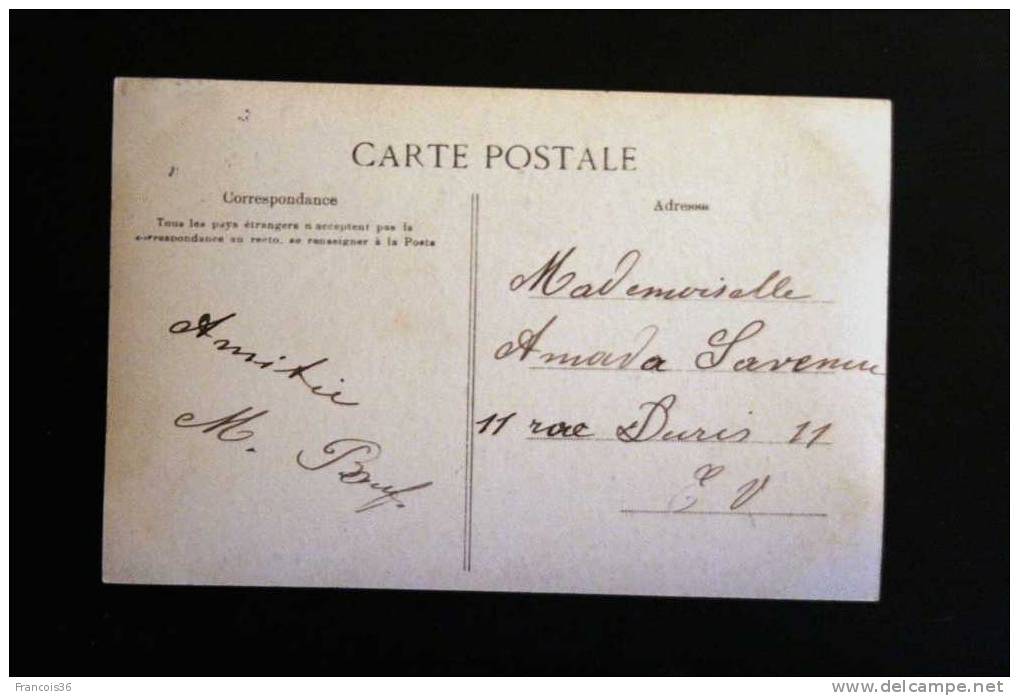 CARTE POSTALE
Correspondance
Tous les pays étrangers n'acceptent pas la
correspondance au recto, se renseigner à la Poste
Adresse
Amitié
M.
Mademoiselle
Amada
11 rue Duris 11
E V
Francois36
www.delcampe.net